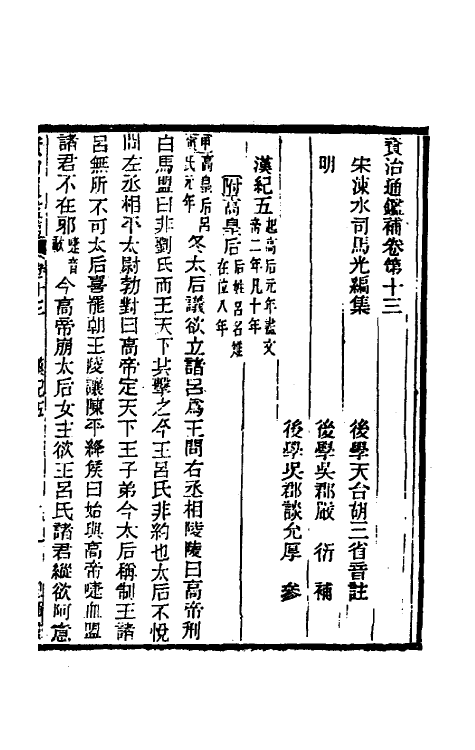 資治通鑑補卷第十三
宋涑水司馬光編集
後學天台胡三省音註
明
後學吳郡嚴衍補
後學吳郡談允厚參
漢紀五起高后元年盡文帝二年凡十年
附高皇后后姓呂名雉在位八年
甲寅高皇后呂氏元年冬太后議欲立諸呂爲王問右丞相陵陵曰高帝刑
白馬盟曰非劉氏而王天下共擊之今王呂氏非約也太后不悅
問左丞相平太尉勃對曰高帝定天下王子弟今太后稱制王諸
呂無所不可太后喜罷朝王陵讓陳平絳侯曰始與高帝啑血盟
諸君不在邪啑音歃今高帝崩太后女主欲王呂氏諸君縱欲阿意